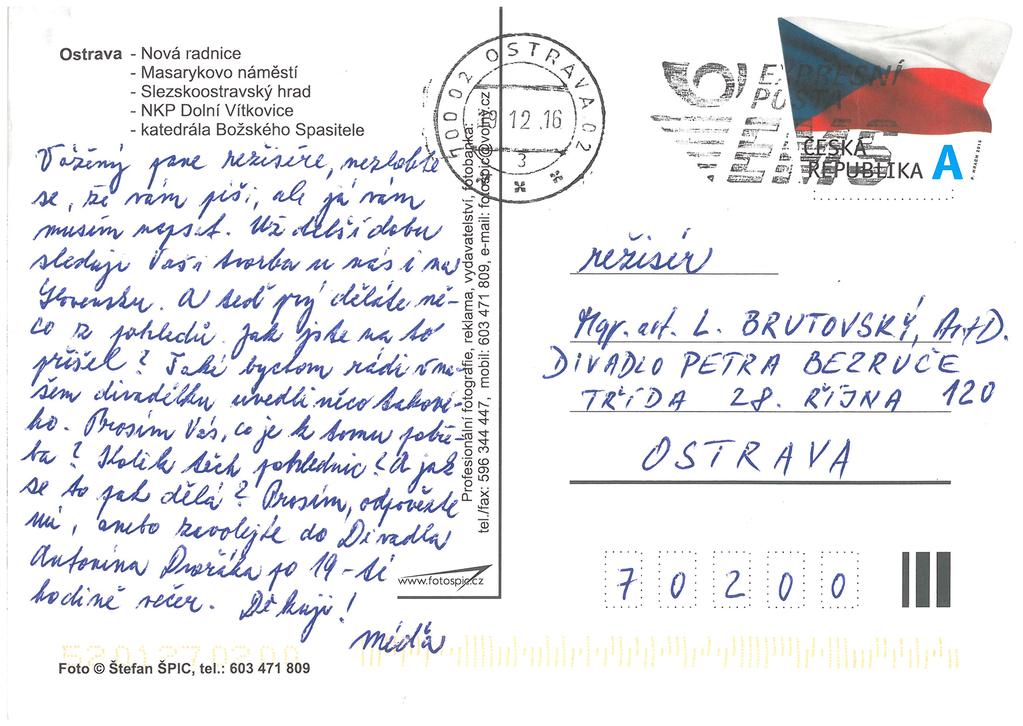 Ostrava - Nová radnice
- Masarykovo náměstí
- Slezskoostravský hrad
- NKP Dolní Vítkovice
- katedrála Božského Spasitele
Vážený pane režisére, nezlobte
se, že vám píši, ale já vám
musím napsat. Už delší dobu
sleduji Vaši tvorbu u nás i na
Slovensku. A teď prý děláte ně-
co z pohledů. Jak jste na to
přišel? Také bychom rádi v na-
šem divadélku uvedli něco takové-
ho. Prosím Vás, co je k tomu potře-
ba? Kolik těch pohlednic? A jak
se to pak dělá? Prosím, odpovězte
mi, anebo zavolejte do Divadla
Antonína Dvořáka po 19-té
hodině večer. Děkuji!
Méďa
Foto © Štefan ŠPIC, tel.: 603 471 809
Profesionální fotografie, reklama, vydavatelství, fotobanka:
tel./fax: 596 344 447, mobil: 603 471 809, e-mail: fotospic@volny.cz
www.fotospic.cz
70002 OSTRAVA 02
12.16
3
EXPRESNÍ
POŠTA
EMS
ČESKÁ
REPUBLIKA A
režisér
Mgr. art. L. BRUTOVSKÝ, ArtD.
DIVADLO PETRA BEZRUČE
TŘÍDA 28. ŘÍJNA 120
OSTRAVA
70200